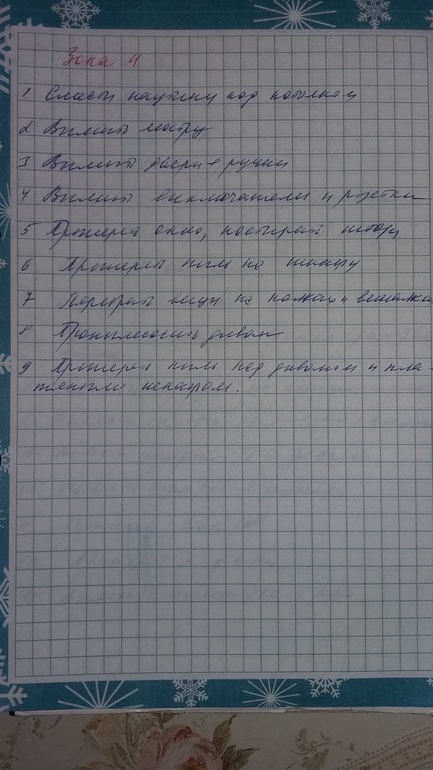 Зона 4
1 Смести паутину под потолком
2 Вымыть люстру
3 Вымыть двери + ручки
4 Вымыть выключатели и розетки
5 Протереть окно, постирать штору
6 Протереть пыль на шкафу
7 Перебрать вещи на полках и вешалках
8 Пропылесосить диван
9 Протереть пыль под диваном и пла-